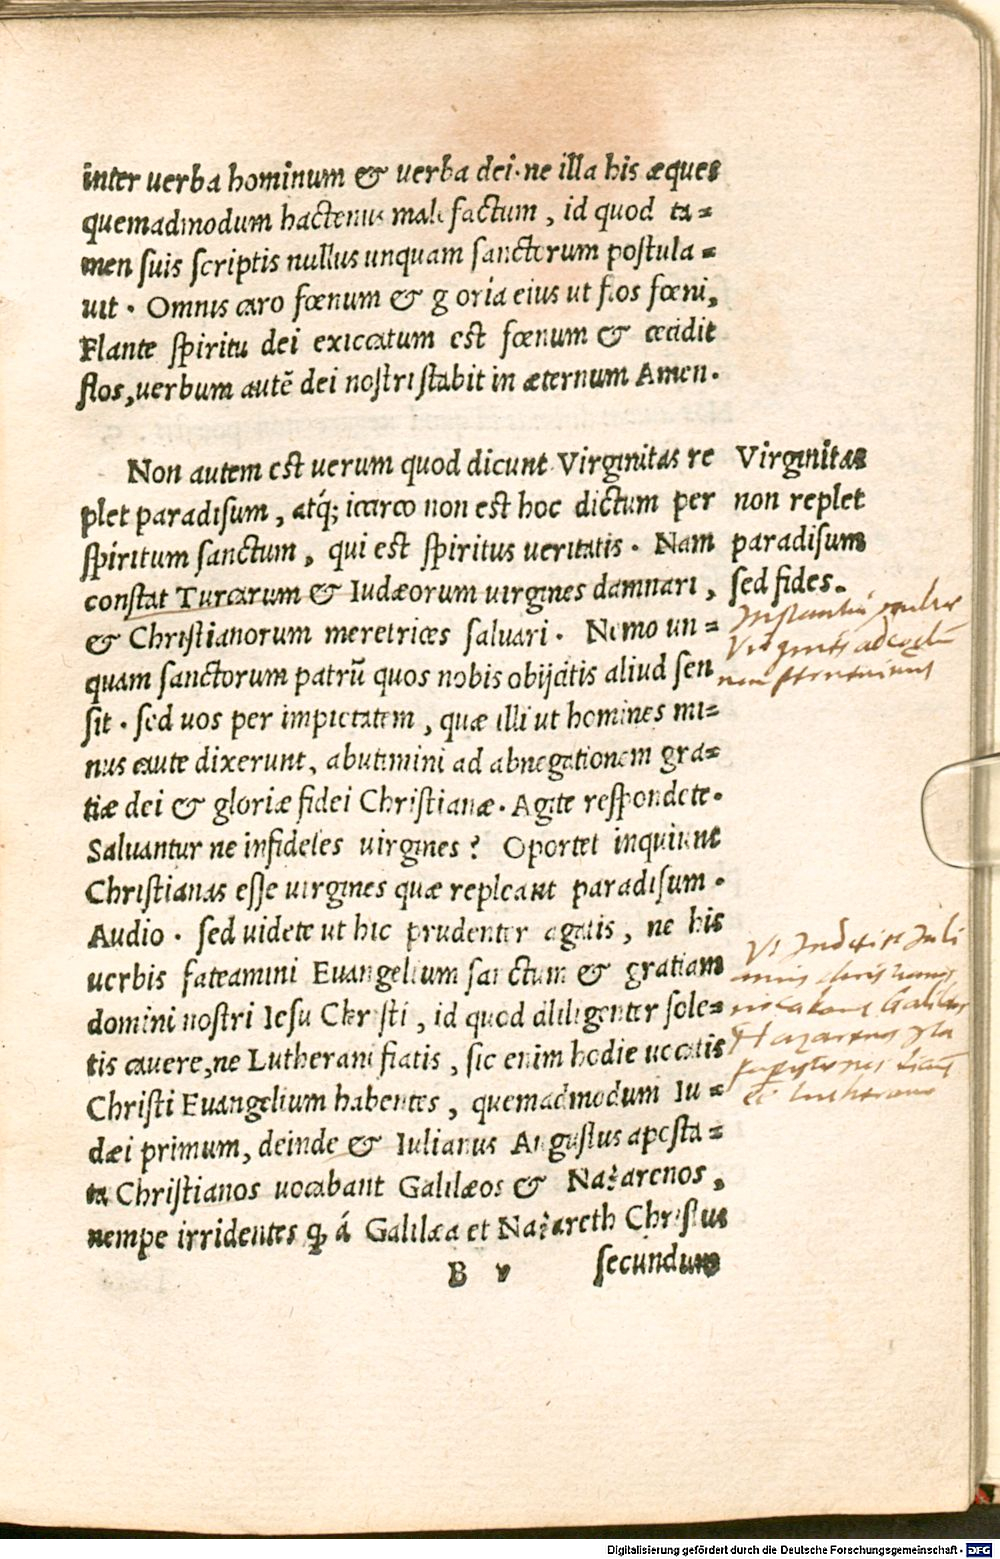 inter uerba hominum & uerba dei. ne illa his æques
quemadmodum hactenus male factum, id quod ta=
men suis scriptis nullus unquam sanctorum postula=
uit. Omnis caro fœnum & gloria eius ut flos fœni,
Flante spiritu dei exiccatum est fœnum & cecidit
flos, uerbum autē dei nostri stabit in æternum Amen.
Non autem est uerum quod dicunt Virginitas re
plet paradisum, atq́; icirco non est hoc dictum per
spiritum sanctum, qui est spiritus ueritatis. Nam
constat Turcarum & Iudæorum uirgines damnari,
& Christianorum meretrices saluari. Nemo un=
quam sanctorum patrū quos nobis obijcitis aliud sen
sit. sed uos per impietatem, quæ illi ut homines mi=
nus caute dixerunt, abutimini ad abnegationem gra=
tiæ dei & gloriæ fidei Christianæ. Agite respondete.
Saluantur ne infideles uirgines? Oportet inquiunt
Christianas esse uirgines quæ repleant paradisum.
Audio. sed uidete ut hic prudenter agatis, ne his
uerbis fateamini Euangelium sanctum & gratiam
domini nostri Iesu Christi, id quod diligenter sole=
tis cauere, ne Lutherani fiatis, sic enim hodie uocatis
Christi Euangelium habentes, quemadmodum Iu=
dæi primum, deinde & Iulianus Augustus aposta=
ta Christianos uocabant Galilæos & Nazarenos,
nempe irridentes ꝙ á Galilæa et Nazareth Christus
B v secundum
Virginitas
non replet
paradisum
sed fides.
non
Christianos
Galileos
Nazarenos
et Lutheranos
Digitalisierung gefördert durch die Deutsche Forschungsgemeinschaft - DFG